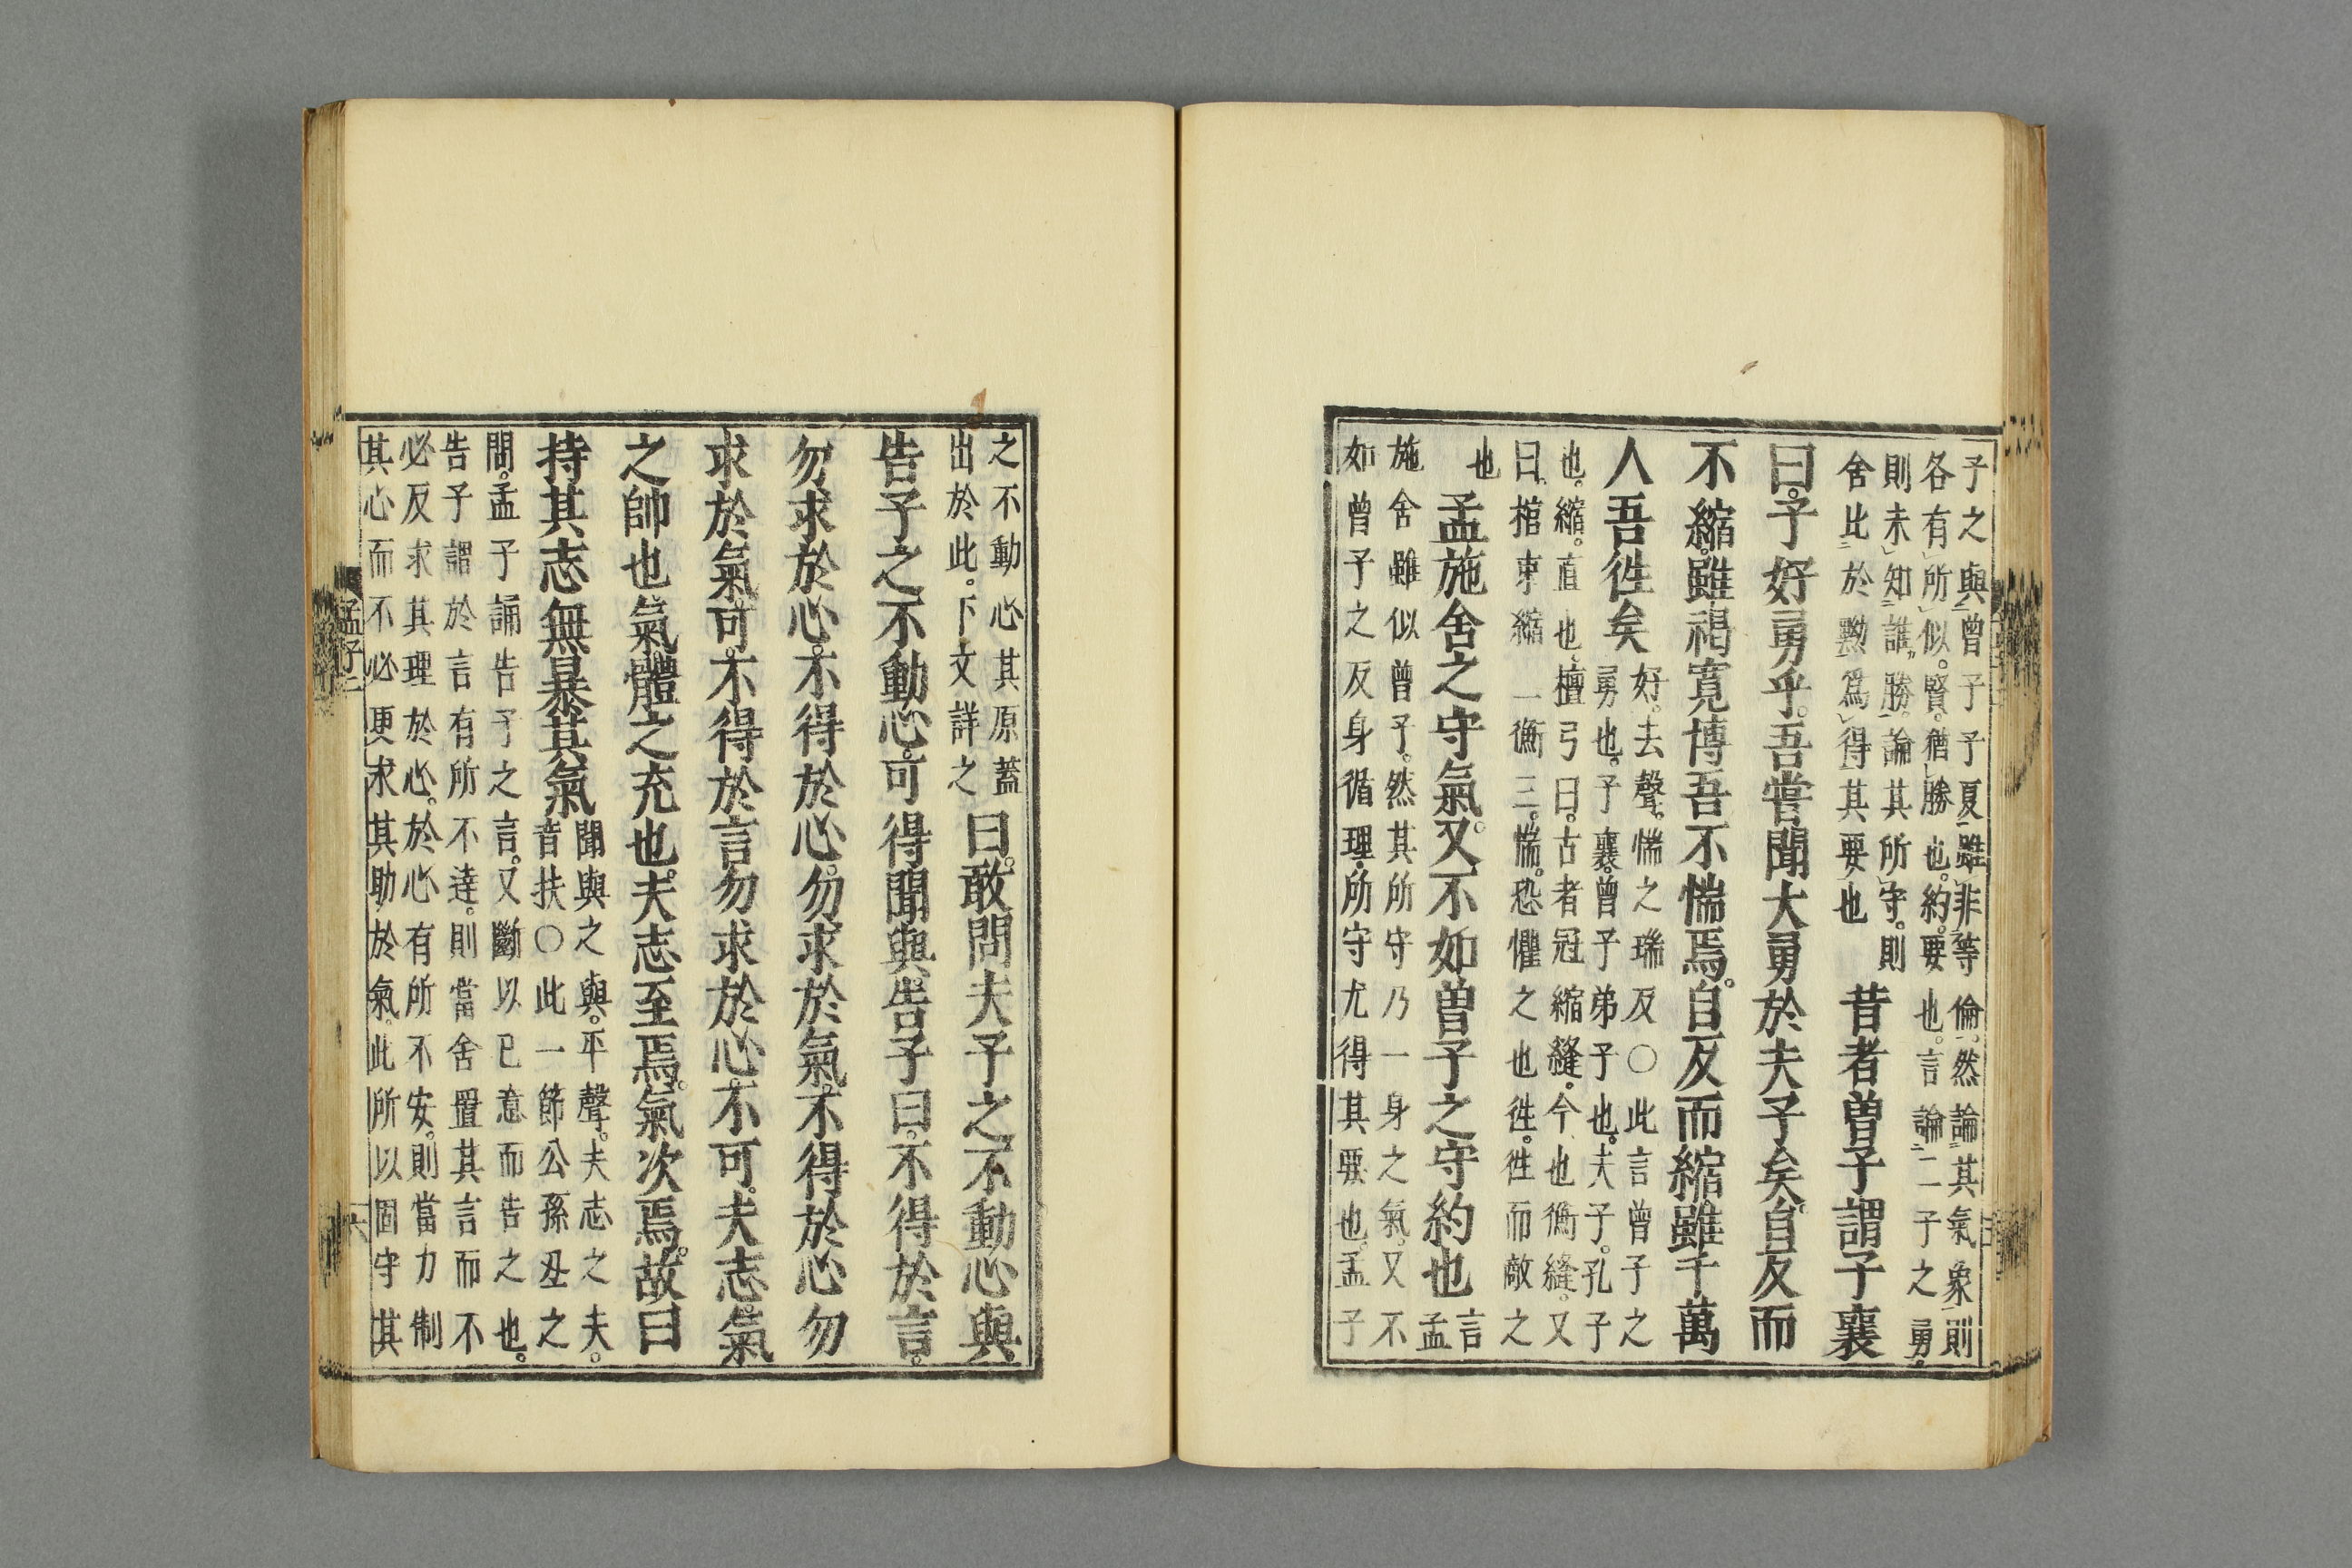 子之與曾子子夏雖非等倫。然論其氣象則
各有所似。賢。猶勝也。約。要也。言論二子之勇。
則未知誰勝。論其所守。則
舍比於黝爲得其要也
昔者曾子謂子襄
曰。子好勇乎。吾嘗聞大勇於夫子矣。自反而
不縮。雖褐寬博吾不惴焉。自反而縮雖千萬
人吾徃矣
好。去聲。惴之瑞反〇此言曾子之
勇也。子襄。曾子弟子也。夫子。孔子
也。縮。直也。檀弓曰。古者冠縮縫。今也衡縫。又
曰。棺束縮一衡三。惴。恐懼之也徃。徃而敵之
也
孟施舍之守氣。又不如曾子之守約也
言
孟
施舍雖似曾子。然其所守乃一身之氣。又不
如曾子之反身循理。所守尤得其要也。孟子
之不動心其原蓋
出於此。下文詳之
曰。敢問夫子之不動心與。
告子之不動心。可得聞與。告子曰。不得於言。
勿求於心。不得於心。勿求於氣。不得於心勿
求於氣。可。不得於言勿求於心。不可。夫志。氣
之帥也。氣體之充也。夫志至焉。氣次焉。故曰
持其志無暴其氣
聞與之與。平聲。夫志之夫。
音扶〇此一節公孫丑之
問。孟子誦告子之言。又斷以已意而告之也。
告子謂於言有所不達。則當舍置其言而不
必反求其理於心。於心有所不安。則當力制
其心而不必更求其助於氣。此所以固守其
孟子二
六